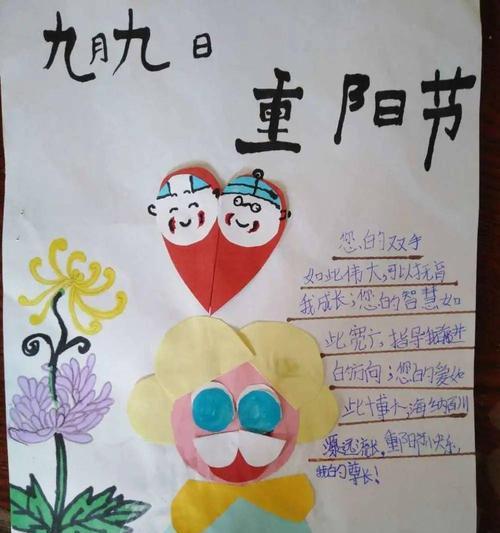 九月九日
重阳节
您的双手
如此伟大,可以抚育
我成长;您的智慧如
此宽广,指导我前进
的方向;您的爱如
此博大,海纳百川
源远流长,重阳节快乐,
我的尊长!